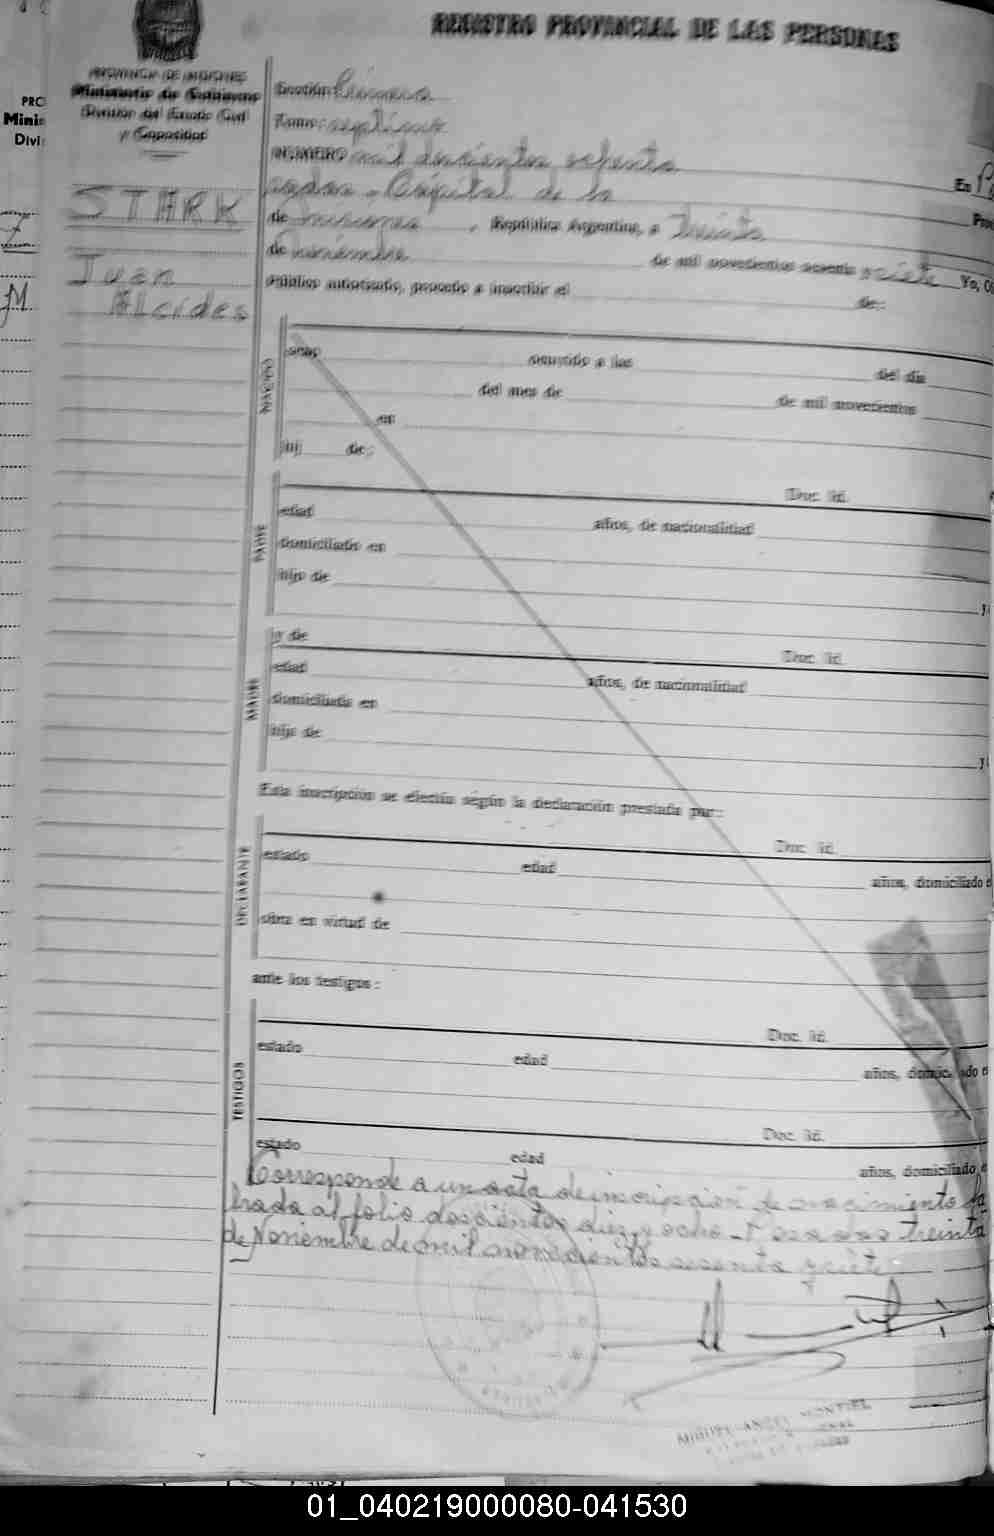 REGISTRO PROVINCIAL DE LAS PERSONAS
PROVINCIA DE MISIONES
Ministerio de Gobierno
División del Estado Civil
y Capacidad
PRO
Minis
Divi
STARK
Juan
Alcides
Sección Primera
Tomo: septimo
NUMERO mil doscientos setenta
En Po
sadas - Capital de la Prov
de Misiones, República Argentina, a treinta
de Noviembre de mil novecientos sesenta y siete Yo, Of
Público autorizado, procedo a inscribir el de:
NACIDO
sexo ocurrido a las del día
del mes de de mil novecientos
en
hij de:
PADRE
Doc. Id.
edad años, de nacionalidad
domiciliado en
hijo de y
MADRE
y de Doc. Id.
edad años, de nacionalidad
domiciliada en
hija de y
Esta inscripción se efectúa según la declaración prestada por:
DECLARANTE
Doc. Id.
estado edad años, domiciliado e
obra en virtud de
ante los testigos:
TESTIGOS
Doc. Id.
estado edad años, domiciliado e
Doc. Id.
estado edad años, domiciliado e
Corresponde a un acta de inscripcion de nacimiento la
brada al folio doscientos diez y ocho - Posadas treinta
de Noviembre de mil novecientos sesenta y siete
MIGUEL ANGEL MONTIEL
01_040219000080-041530